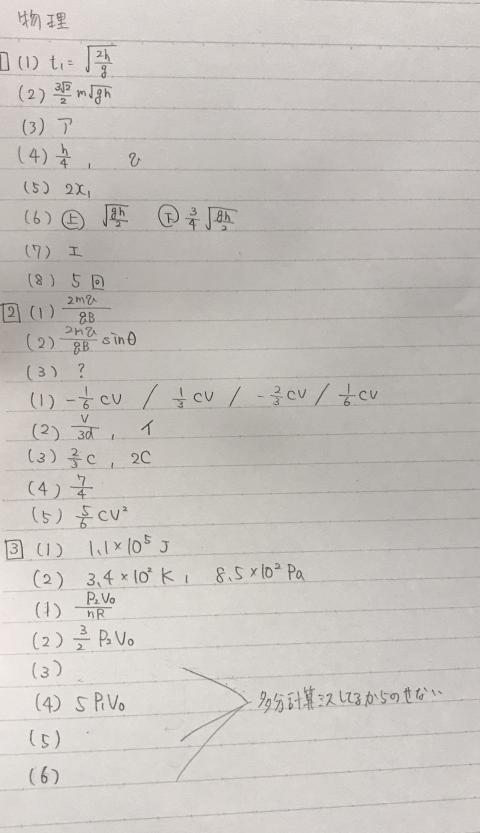 物理
1 (1) t₁ = √(2h/g)
(2) 3√2/2 m√gh
(3) ア
(4) h/4 , v
(5) 2x₁
(6) ㊤ √(gh/2) ㊦ 3/4 √(gh/2)
(7) エ
(8) 5回
2 (1) 2mv/qB
(2) 2mv/qB sinθ
(3) ?
(1) -1/6 CV / 1/3 CV / -2/3 CV / 1/6 CV
(2) V/3d , イ
(3) 2/3 C , 2C
(4) 7/4
(5) 5/6 CV²
3 (1) 1.1×10⁵ J
(2) 3.4×10² K , 8.5×10² Pa
(1) P₂V₀/nR
(2) 3/2 P₂V₀
(3)
(4) 5P₁V₀ 多分計算ミスしてるからのせない
(5)
(6)